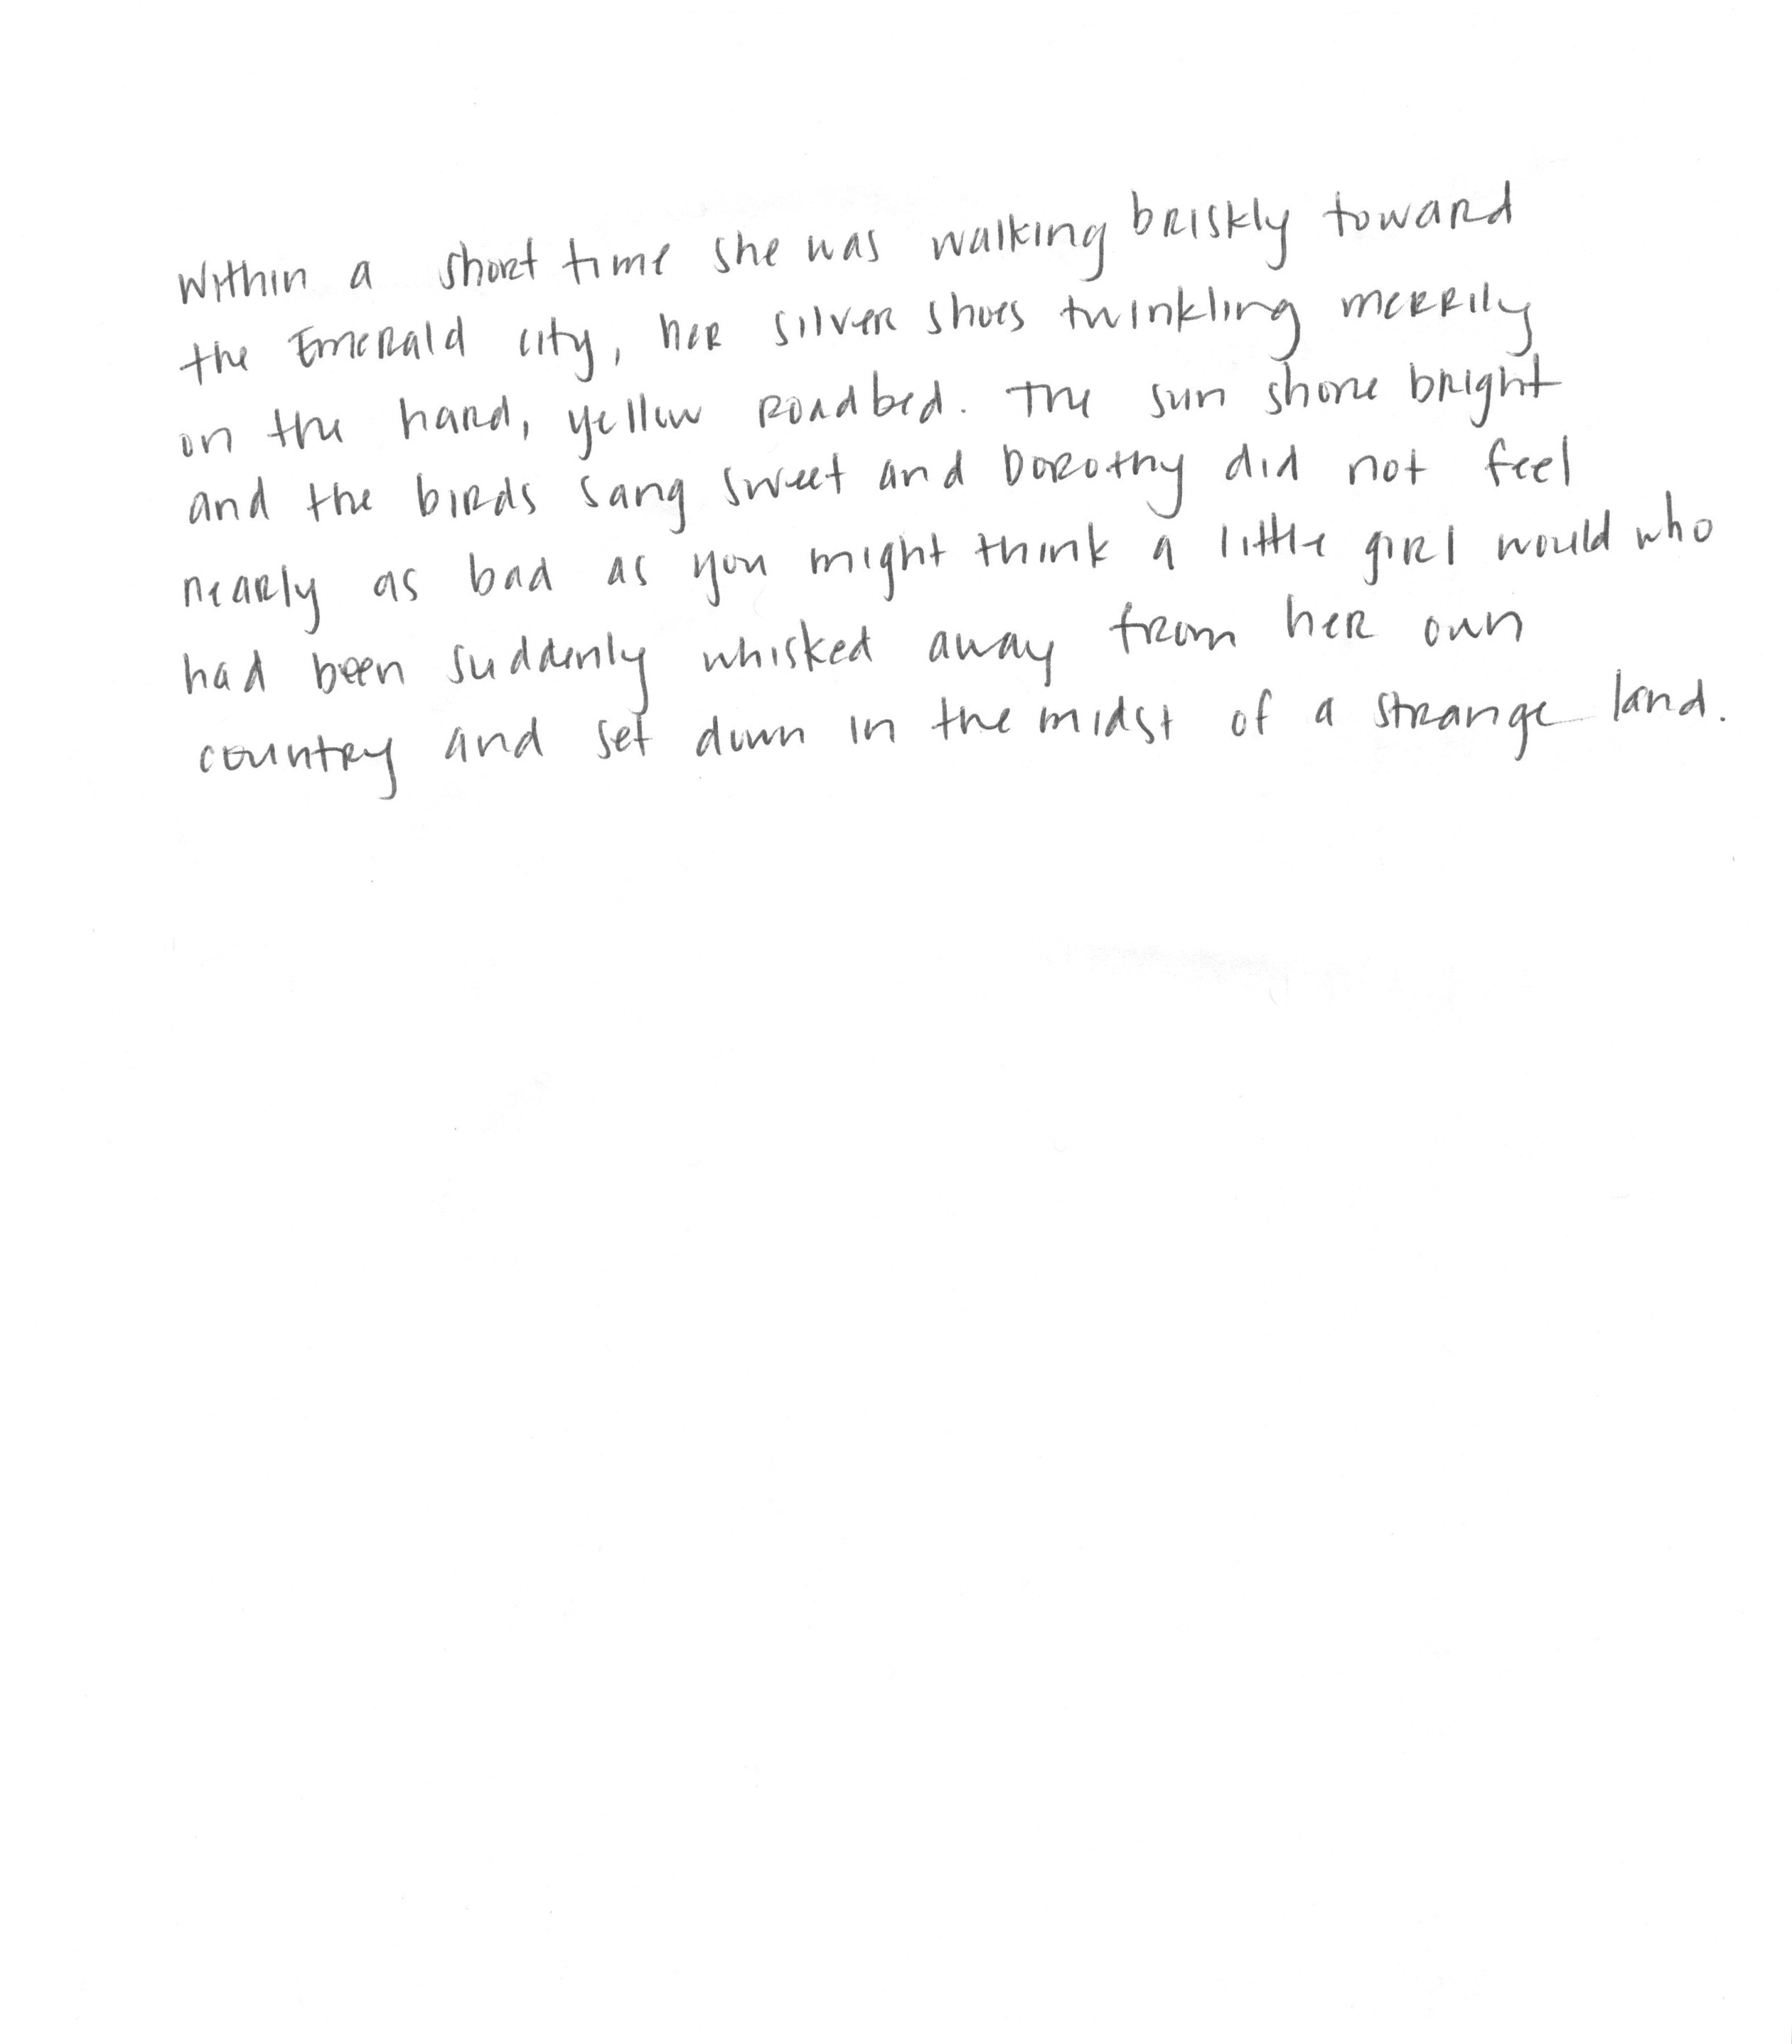 Within a short time she was walking briskly toward
the Emerald City, her silver shoes twinkling merrily
on the hard, yellow roadbed. The sun shone bright
and the birds sang sweet and Dorothy did not feel
nearly as bad as you might think a little girl would who
had been suddenly whisked away from her own
country and set down in the midst of a strange land.